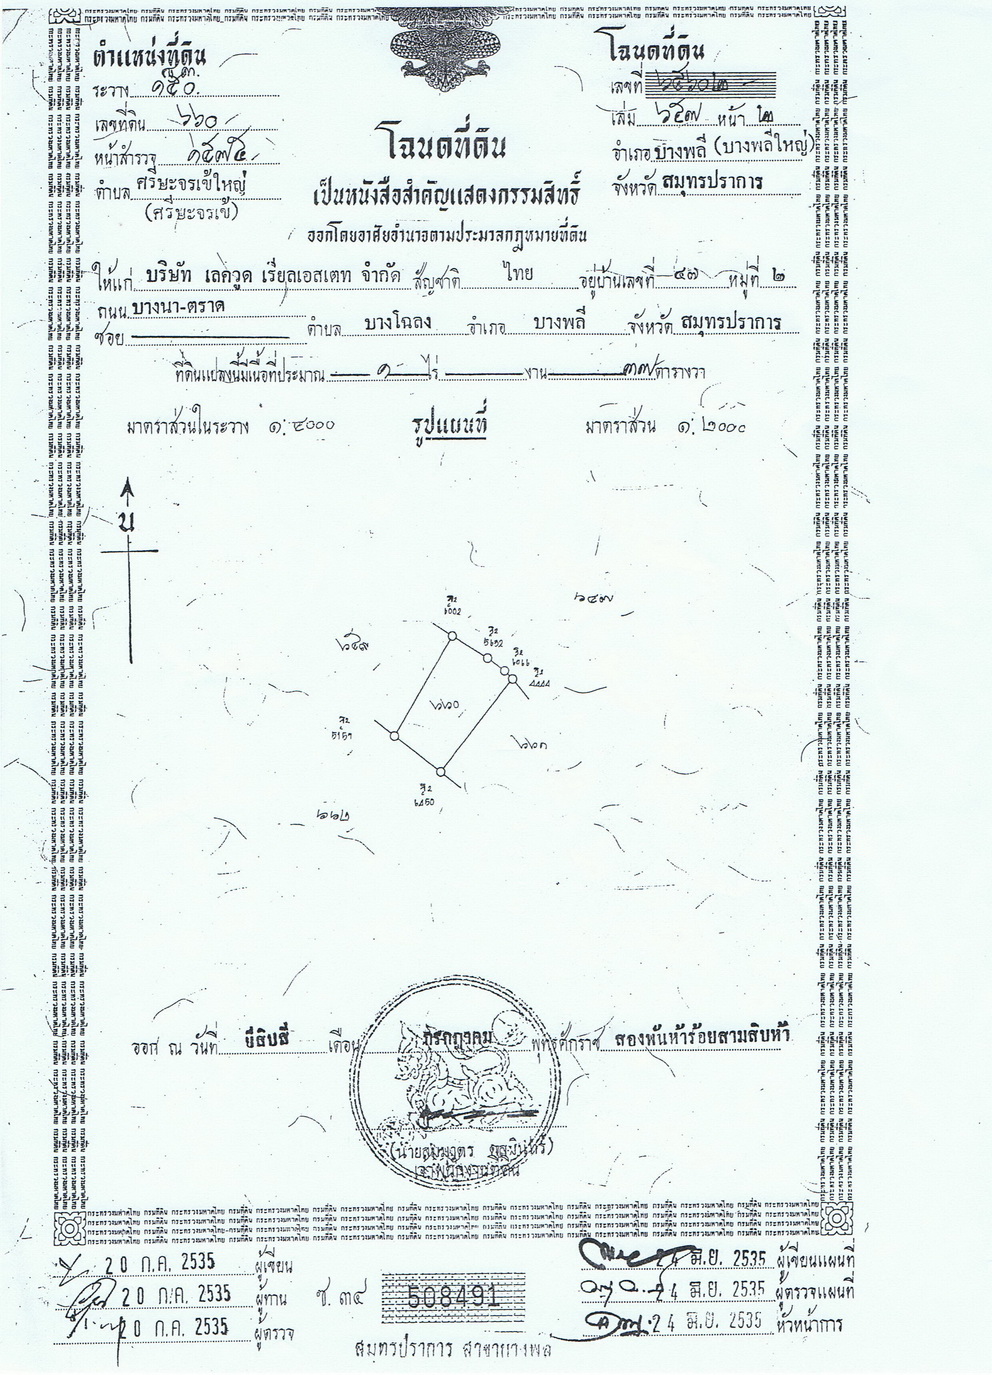 ตำแหน่งที่ดิน
ระวาง ๑๕๐.
เลขที่ดิน ๖๖๐
หน้าสำรวจ ๑๕๗๕
ตำบล ศรีษะจรเข้ใหญ่
(ศรีษะจรเข้)
โฉนดที่ดิน
เลขที่
เล่ม ๖๕๗ หน้า ๒
อำเภอ บางพลี (บางพลีใหญ่)
จังหวัด สมุทรปราการ
โฉนดที่ดิน
เป็นหนังสือสำคัญแสดงกรรมสิทธิ์
ออกโดยอาศัยอำนาจตามประมวลกฎหมายที่ดิน
ให้แก่ บริษัท เลควูด เรียลเอสเตท จำกัด สัญชาติ ไทย อยู่บ้านเลขที่ ๔๗ หมู่ที่ ๒
ถนน บางนา-ตราด
ซอย ตำบล บางโฉลง อำเภอ บางพลี จังหวัด สมุทรปราการ
ที่ดินแปลงนี้มีเนื้อที่ประมาณ ๑ ไร่ งาน ๓๗ ตารางวา
มาตราส่วนในระวาง ๑:๔๐๐๐ รูปแผนที่ มาตราส่วน ๑:๒๐๐๐
น
๖๔๗
๖๔๙
๖๖๐
๖๖๑
๖๖๒
ออก ณ วันที่ ยี่สิบสี่ เดือน กรกฎาคม พุทธศักราช สองพันห้าร้อยสามสิบห้า
เจ้าพนักงานที่ดิน
20 ก.ค. 2535 ผู้เขียน
20 ก.ค. 2535 ผู้ทาน
20 ก.ค. 2535 ผู้ตรวจ
ซ. ๓๔ 508491
24 มิ.ย. 2535 ผู้เขียนแผนที่
24 มิ.ย. 2535 ผู้ตรวจแผนที่
24 มิ.ย. 2535 หัวหน้าการ
สมุทรปราการ สาขาบางพลี